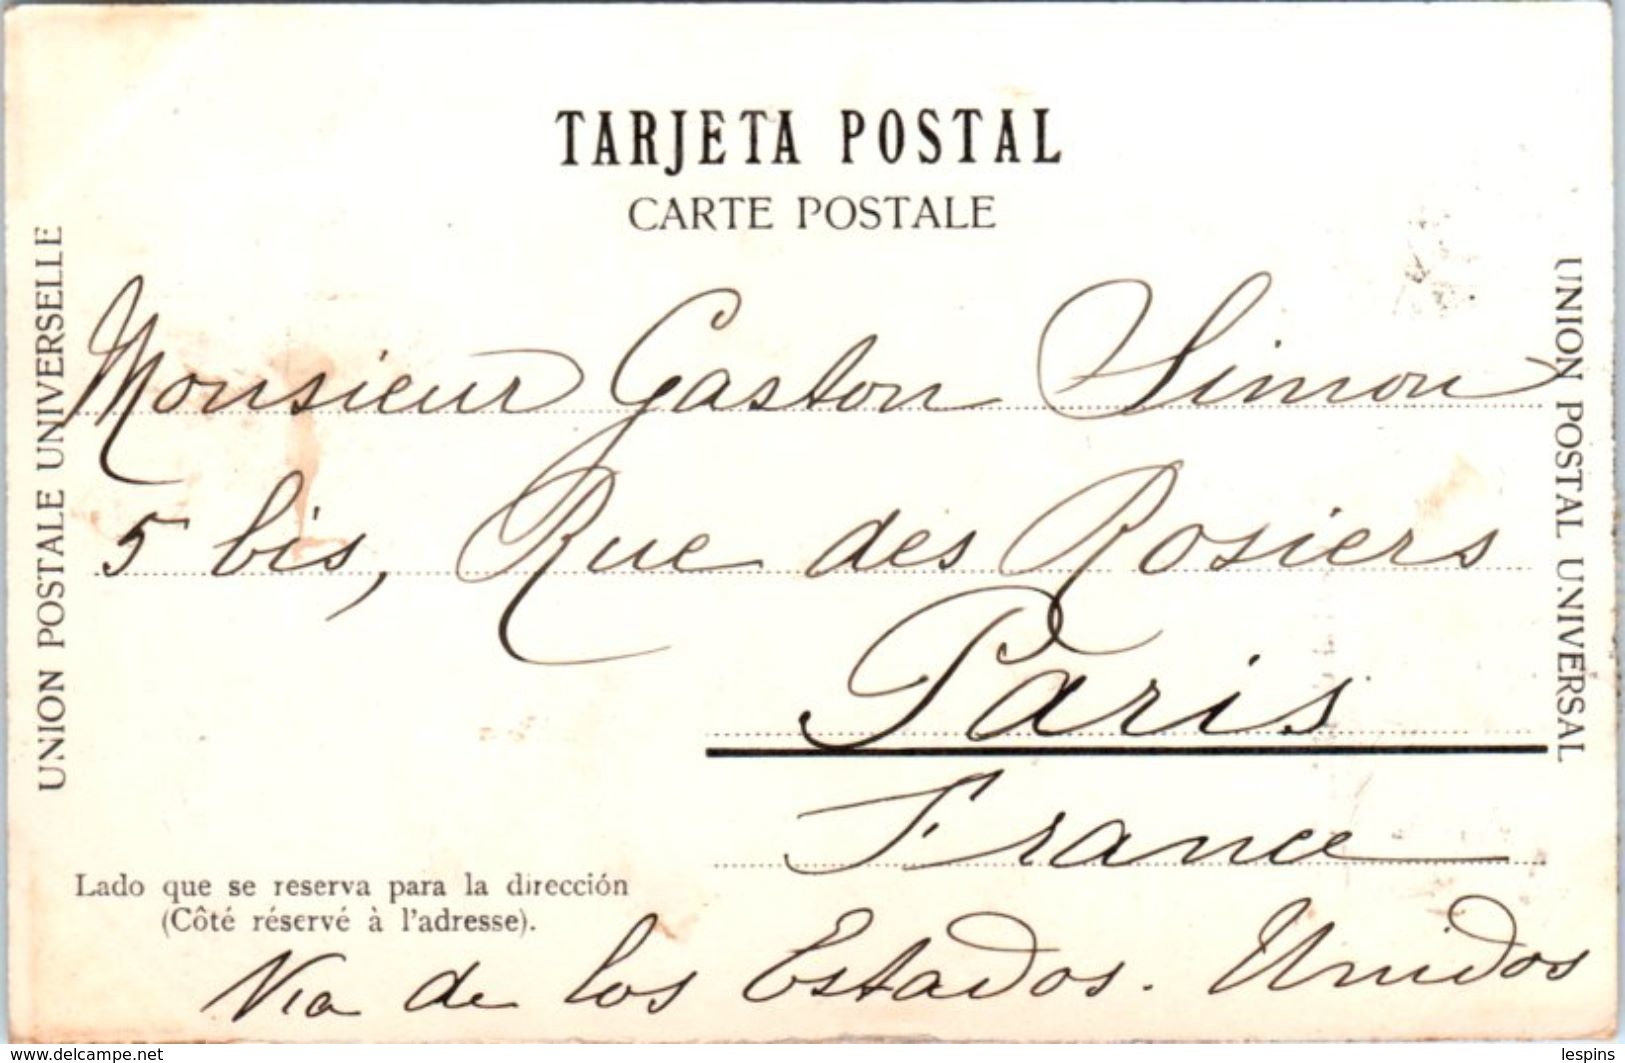 TARJETA POSTAL
CARTE POSTALE
UNION POSTALE UNIVERSELLE
UNION POSTAL UNIVERSAL
Monsieur Gaston Simon
5 bis, Rue des Rosiers
Paris
France
Lado que se reserva para la dirección
(Côté réservé à l'adresse).
Via de los Estados. Unidos
www.delcampe.net
lespins